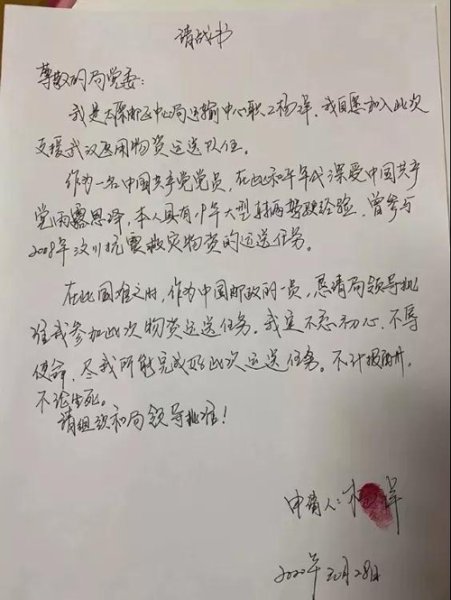 请战书
尊敬的局党委:
我是太原邮区中心局运输中心职工杨洋,我自愿加入此次
支援武汉医用物资运送队伍。
作为一名中国共产党党员,在此和平年代深受中国共产
党雨露恩泽,本人具有年大型车辆驾驶经验,曾参与
2008年汶川抗震救灾物资的运送任务。
在此国难之时,作为中国邮政的一员,恳请局领导批
准我参加此次物资运送任务。我定不忘初心,不辱
使命,尽我所能完成好此次运送任务。不计报酬,
不论生死。
请组织和局领导批准!
申请人:杨洋
2020年元月28日